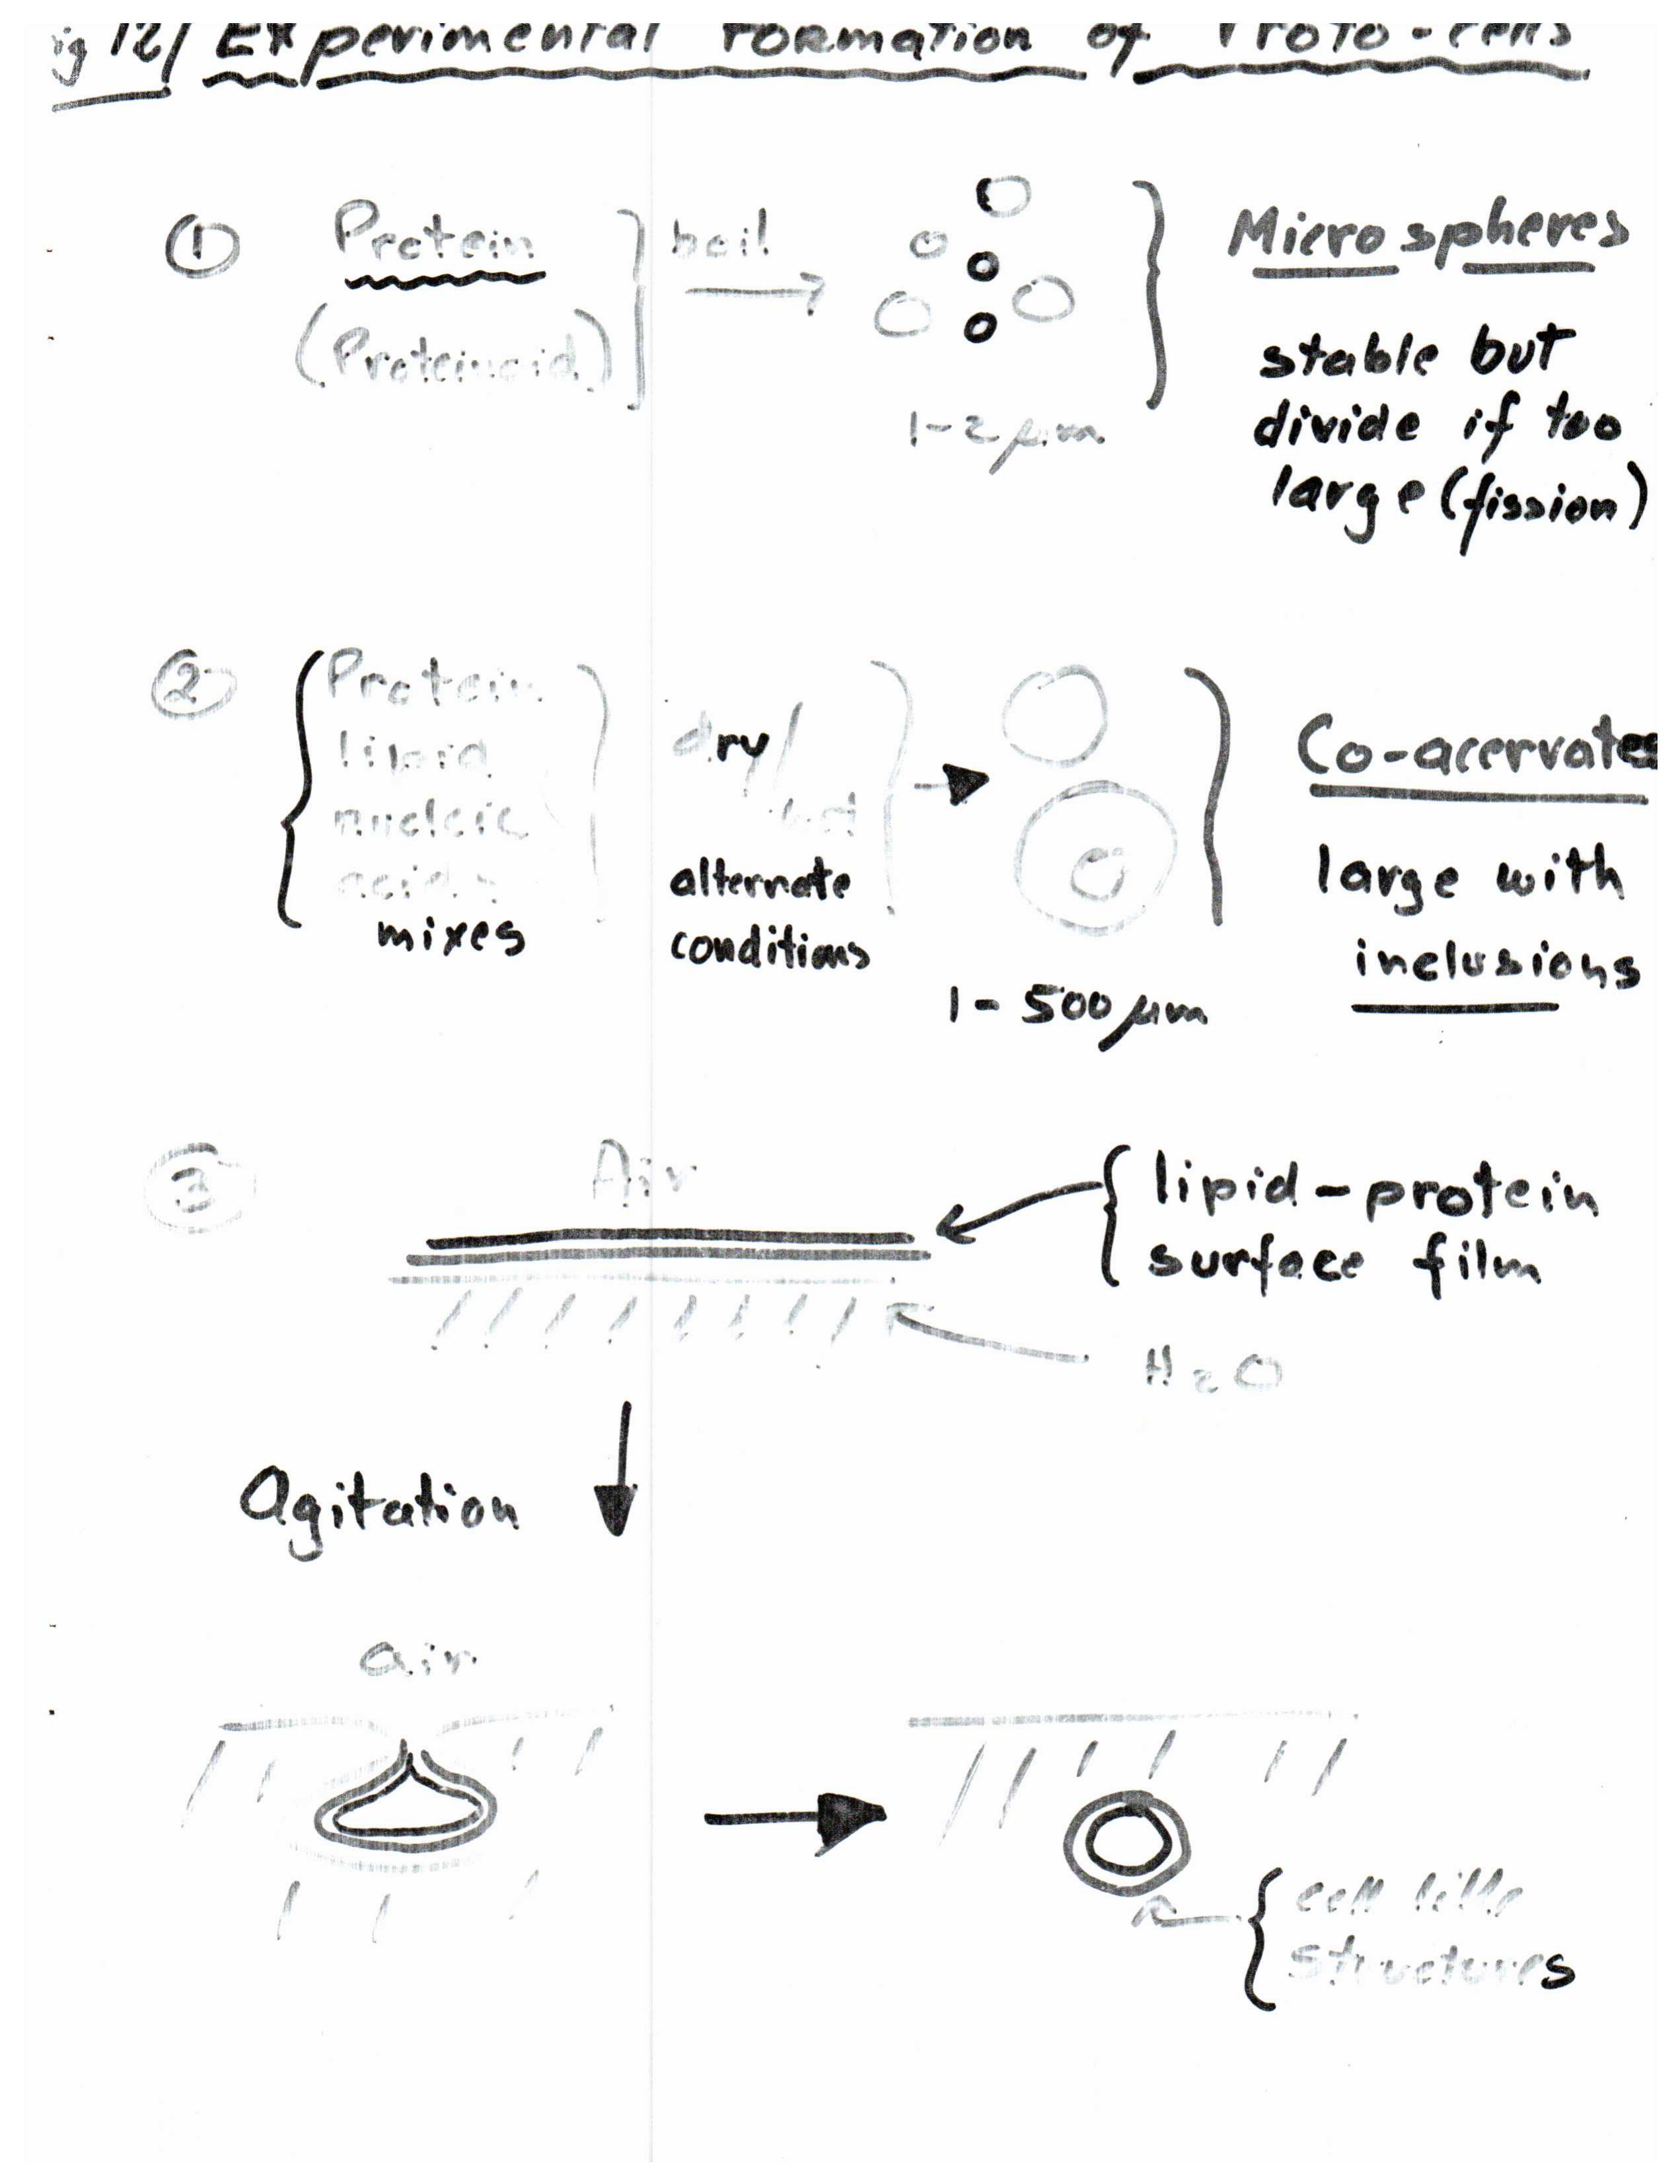 ig 12/ Experimental Formation of Proto-cells
① Protein
(Proteinoid)
boil
1-2 μm
Microspheres
stable but
divide if too
large (fission)
② Protein
lipid
nucleic
acids
mixes
dry/
wet
alternate
conditions
1-500 μm
Co-acervates
large with
inclusions
③ Air
lipid-protein
surface film
H2O
Agitation
air
cell like
structures